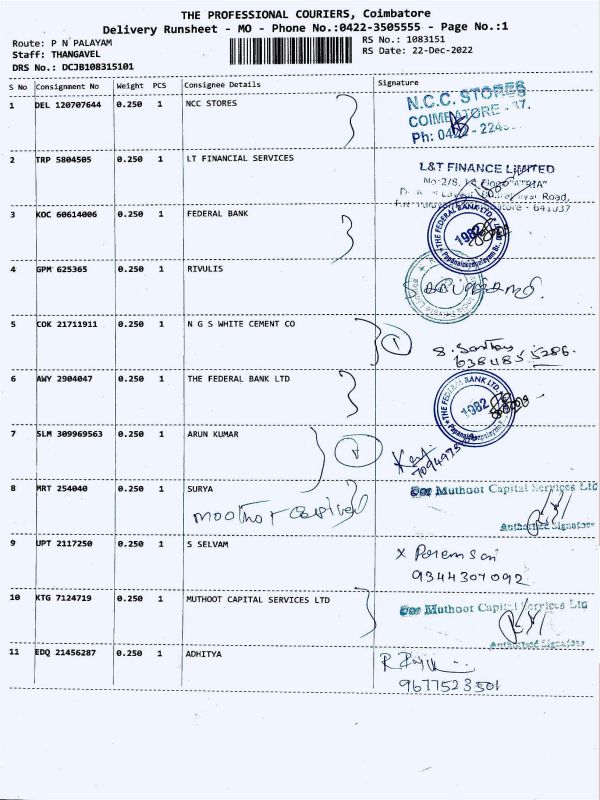 THE PROFESSIONAL COURIERS, Coimbatore
Delivery Runsheet - MO - Phone No.:0422-3505555 - Page No.:1
Route: P N PALAYAM
RS No.: 1083151
Staff: THANGAVEL
RS Date: 22-Dec-2022
DRS No.: DCJB108315101
S No Consignment No Weight PCS Consignee Details Signature
1 DEL 120707644 0.250 1 NCC STORES
N.C.C. STORES
COIMBATORE - 37.
Ph: 0422 - 224
2 TRP 5804505 0.250 1 LT FINANCIAL SERVICES
L&T FINANCE LIMITED
No-2/8, "ATRIA"
Road,
641037
3 KOC 60614006 0.250 1 FEDERAL BANK
THE FEDERAL BANK LTD
1982
4 GPM 625365 0.250 1 RIVULIS
5 COK 21711911 0.250 1 N G S WHITE CEMENT CO
1
6384855286.
6 AWY 2904047 0.250 1 THE FEDERAL BANK LTD
THE FEDERAL BANK LTD
1982
7 SLM 309969563 0.250 1 ARUN KUMAR
8 MRT 254040 0.250 1 SURYA
For Muthoot Capital Services Ltd
Authorised Signatory
9 UPT 2117250 0.250 1 S SELVAM
9344307092
10 KTG 7124719 0.250 1 MUTHOOT CAPITAL SERVICES LTD
For Muthoot Capital Services Ltd
Authorised Signatory
11 EDQ 21456287 0.250 1 ADHITYA
9677523501